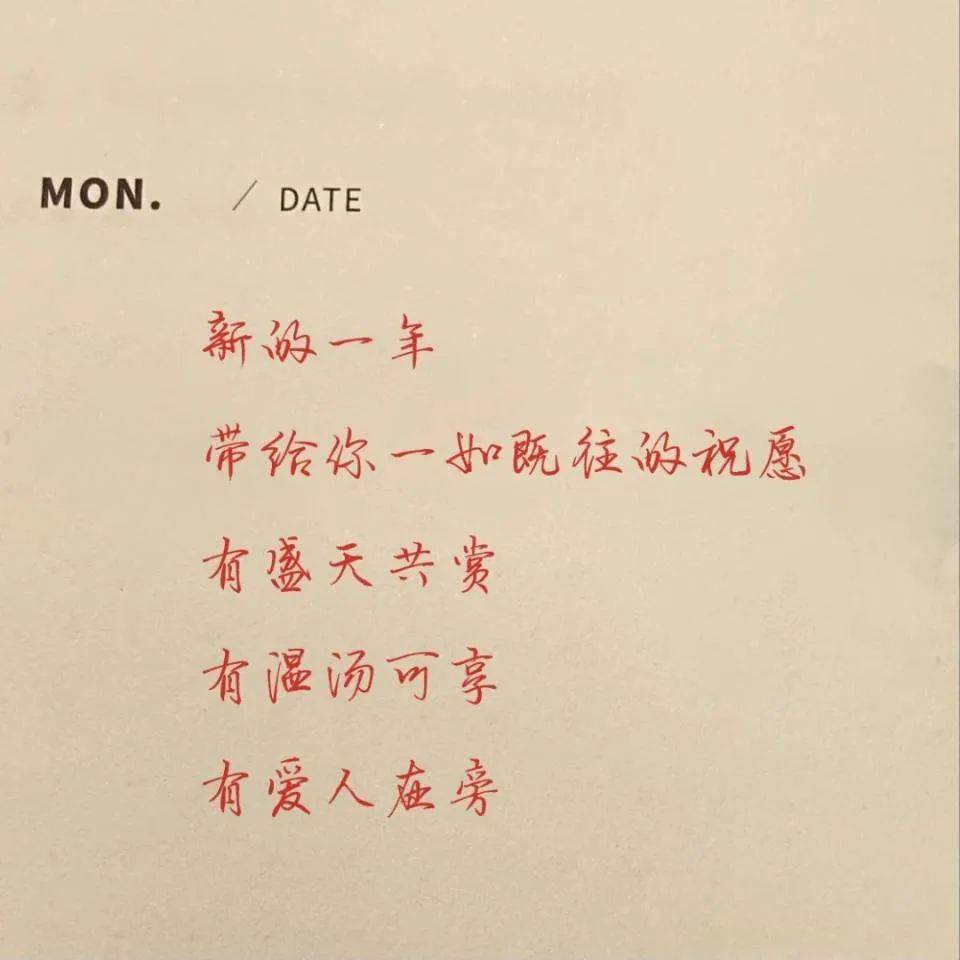 MON. / DATE
新的一年
带给你一如既往的祝愿
有盛天共赏
有温汤可享
有爱人在旁